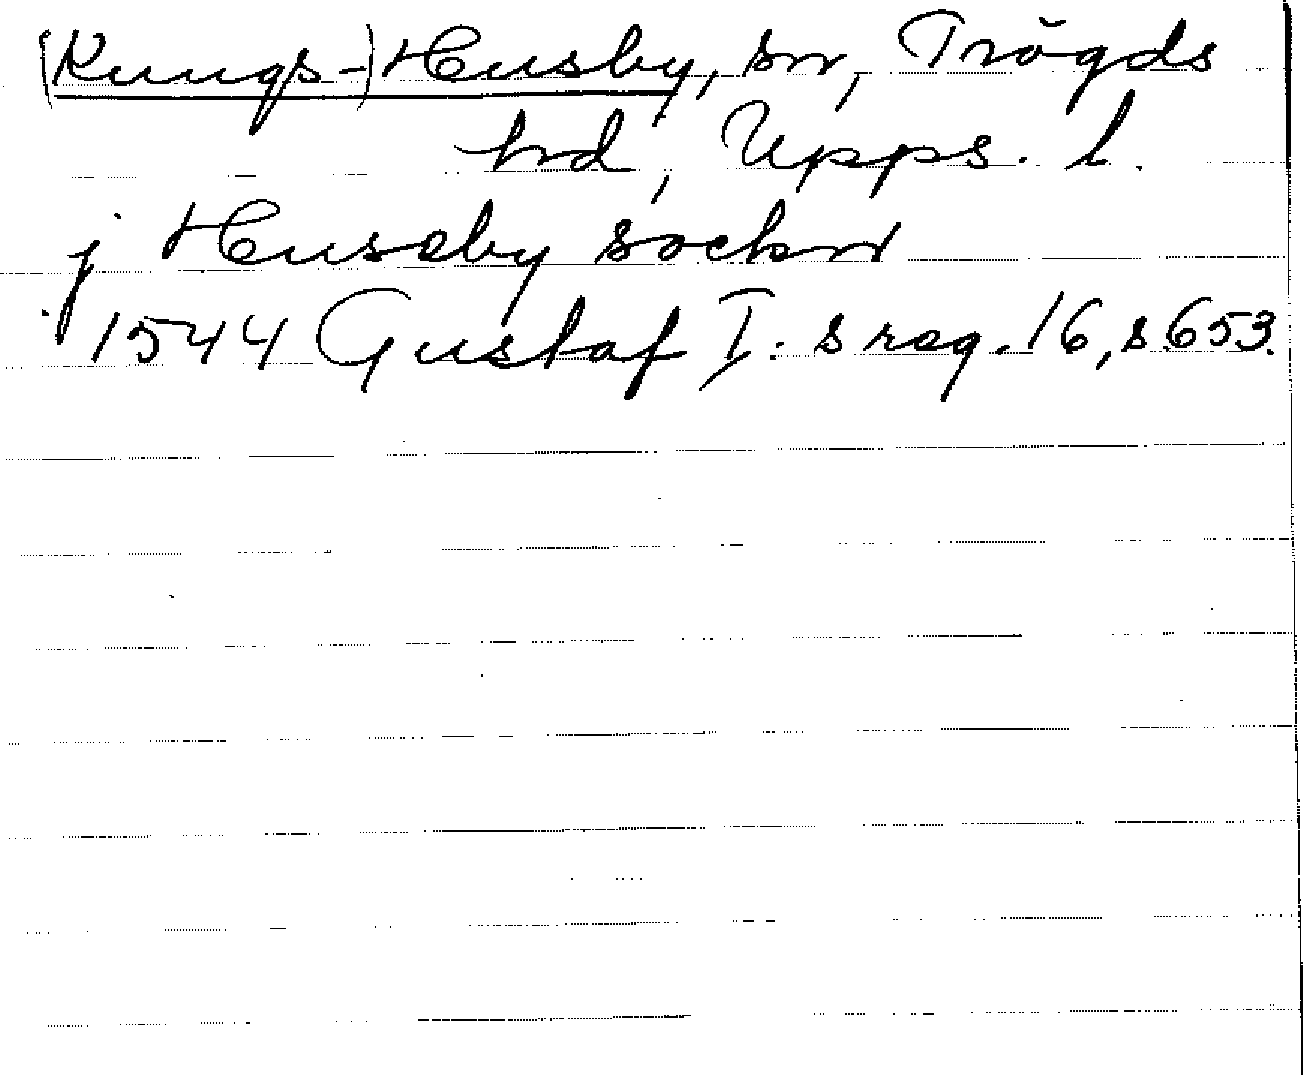 (Kungs-)Husby, sn, Trögds
hd, Upps. l.
j Huseby sockn
1544 Gustaf I:s reg. 16, s. 653.